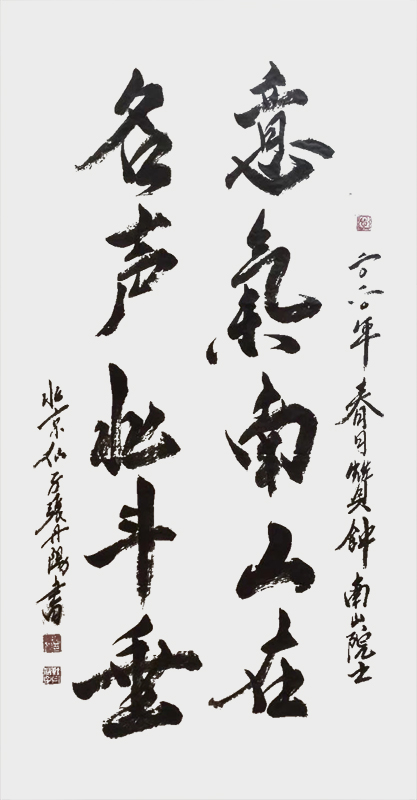 二〇二〇年春日贊鍾南山院士
意氣南山在
名声北斗垂
北京張丹陽書